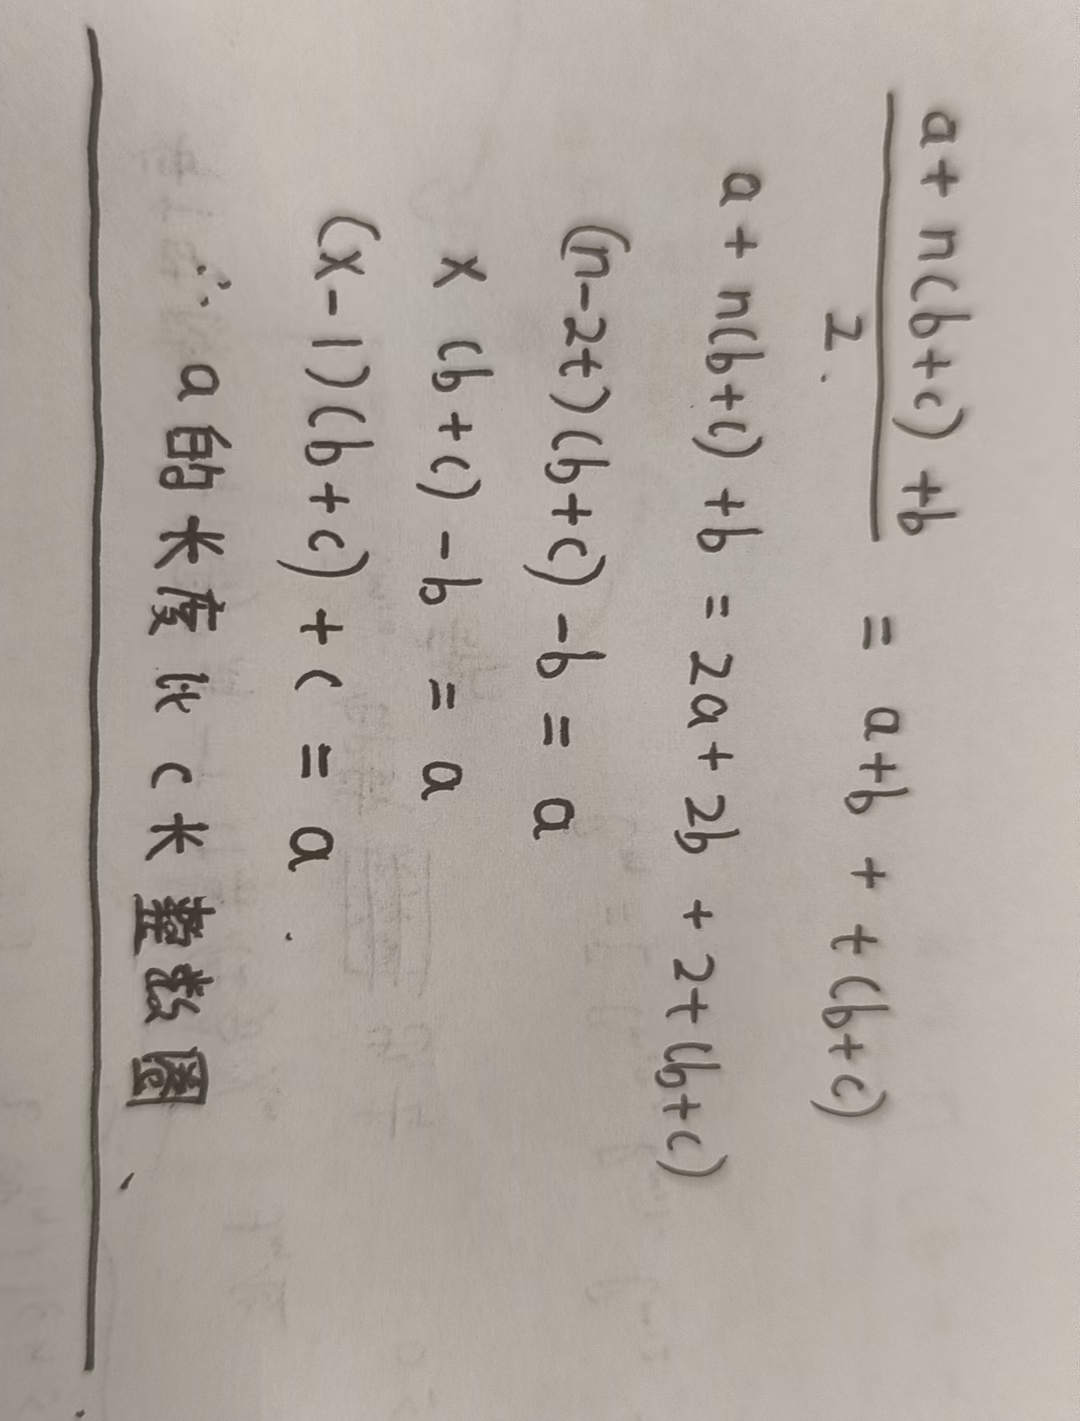 a + n(b+c) + b
2. = a+b + t(b+c)
a + n(b+c) + b = 2a + 2b + 2t(b+c)
(n-2t)(b+c) - b = a
x (b+c) - b = a
(x-1)(b+c) + c = a .
∴ a的长度比c长整数圈.